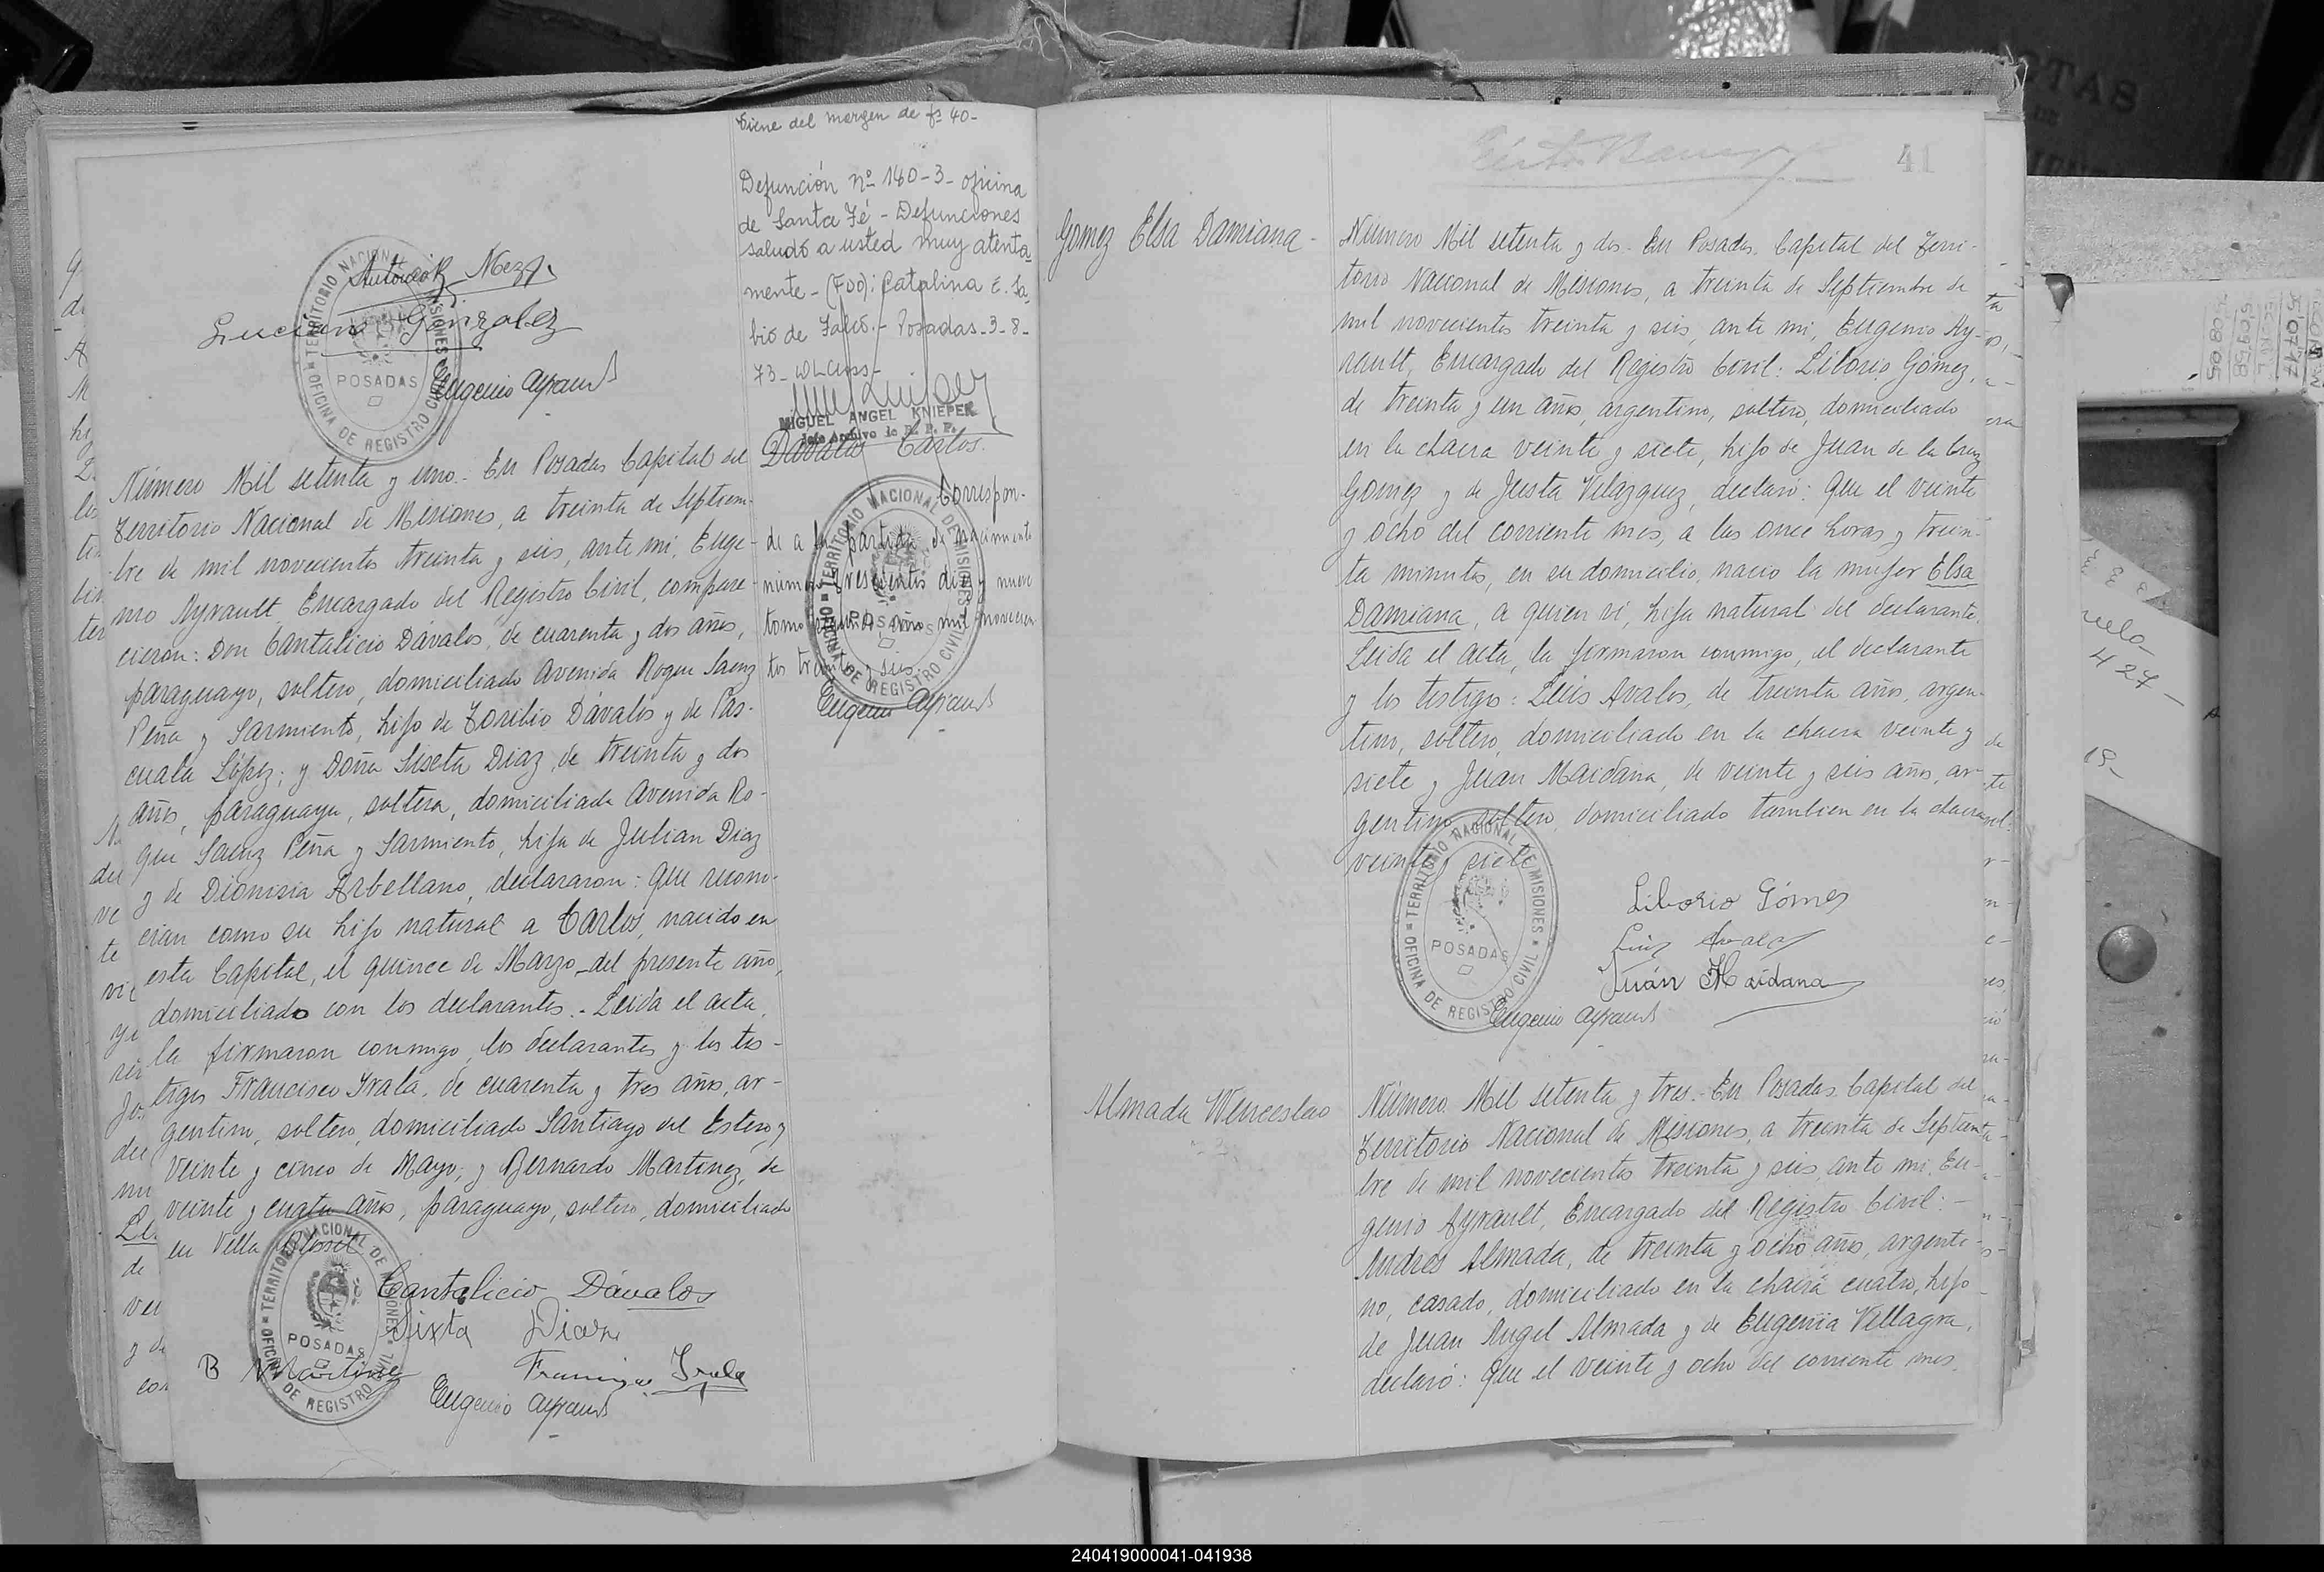 viene del margen de fº 40-
Defunción nº 140-3- oficina
de Santa Fé - Defunciones
saludó a usted muy atenta
mente - (FDO): Catalina E. Sa-
bió de Falcó. - Posadas-3-8-
73-
MIGUEL ANGEL KNIEPER
Jefe Archivo de R. P. P.
Luciano González
Eugenio Ayrault
TERRITORIO NACIONAL DE MISIONES
POSADAS
OFICINA DE REGISTRO CIVIL
Dávalos Carlos.
Correspon-
de a la partida de nacimiento
número trescientos diez y nueve
tomo segundo, año mil novecien
tos treinta y seis
Eugenio Ayrault
TERRITORIO NACIONAL DE MISIONES
POSADAS
OFICINA DE REGISTRO CIVIL
Número Mil setenta y uno.- En Posadas Capital del
Territorio Nacional de Misiones, a treinta de Septiem-
bre de mil novecientos treinta y seis, ante mi, Euge-
nio Ayrault, Encargado del Registro Civil, compare-
cieron: Don Cantalicio Dávalos, de cuarenta y dos años,
paraguayo, soltero, domiciliado Avenida Roque Saenz
Peña y Sarmiento, hijo de Toribio Dávalos y de Pas-
cuala López; y Doña Sixta Diaz, de treinta y dos
años, paraguaya, soltera, domiciliada Avenida Ro-
que Saenz Peña y Sarmiento, hija de Julian Diaz
y de Dionisia Arbellano, declararon: Que recono-
cian como su hijo natural a Carlos, nacido en
esta Capital, el quince de Marzo del presente año,
domiciliado con los declarantes.- Leida el acta,
la firmaron conmigo, los declarantes y los tes-
tigos Francisco Irala, de cuarenta y tres años, ar-
gentino, soltero, domiciliado Santiago del Estero y
Veinte y cinco de Mayo; y Bernardo Martinez, de
veinte y cuatro años, paraguayo, soltero, domiciliado
en Villa
Cantalicio Dávalos
Sixta Diaz
B Martinez Francisco Irala
Eugenio Ayrault
TERRITORIO NACIONAL DE MISIONES
POSADAS
OFICINA DE REGISTRO CIVIL
41
Gomez Elsa Damiana-
Número Mil setenta y dos.- En Posadas, Capital del Terri-
torio Nacional de Misiones, a treinta de Septiembre de
mil novecientos treinta y seis, ante mi, Eugenio Ay-
rault, Encargado del Registro Civil: Liborio Gomez,
de treinta y un años, argentino, soltero, domiciliado
en la chacra veinte y siete, hijo de Juan de la Cruz
Gomez y de Justa Velazquez, declaró: Que el veinte
y ocho del corriente mes, a las once horas y trein-
ta minutos, en su domicilio, nació la mujer Elsa
Damiana, a quien vi, hija natural del declarante.
Leida el acta, la firmaron conmigo, el declarante
y los testigos: Luis Avalos, de treinta años, argen-
tino, soltero, domiciliado en la chacra veinte y
siete y Juan Maidana, de veinte y seis años, ar-
gentino, soltero, domiciliado tambien en la chacra
veinte y siete
Liborio Gómes
Luis Avalos
Juán Maidana
Eugenio Ayrault
TERRITORIO NACIONAL DE MISIONES
POSADAS
OFICINA DE REGISTRO CIVIL
Almada Wenceslao
Número Mil setenta y tres.- En Posadas, Capital del
Territorio Nacional de Misiones, a treinta de Septiem-
bre de mil novecientos treinta y seis, ante mi, Eu-
genio Ayrault, Encargado del Registro Civil:-
Andrés Almada, de treinta y ocho años, argenti-
no, casado, domiciliado en la chacra cuatro, hijo
de Juan Angel Almada y de Eugenia Villagra,
declaró: Que el veinte y ocho del corriente mes,
240419000041-041938